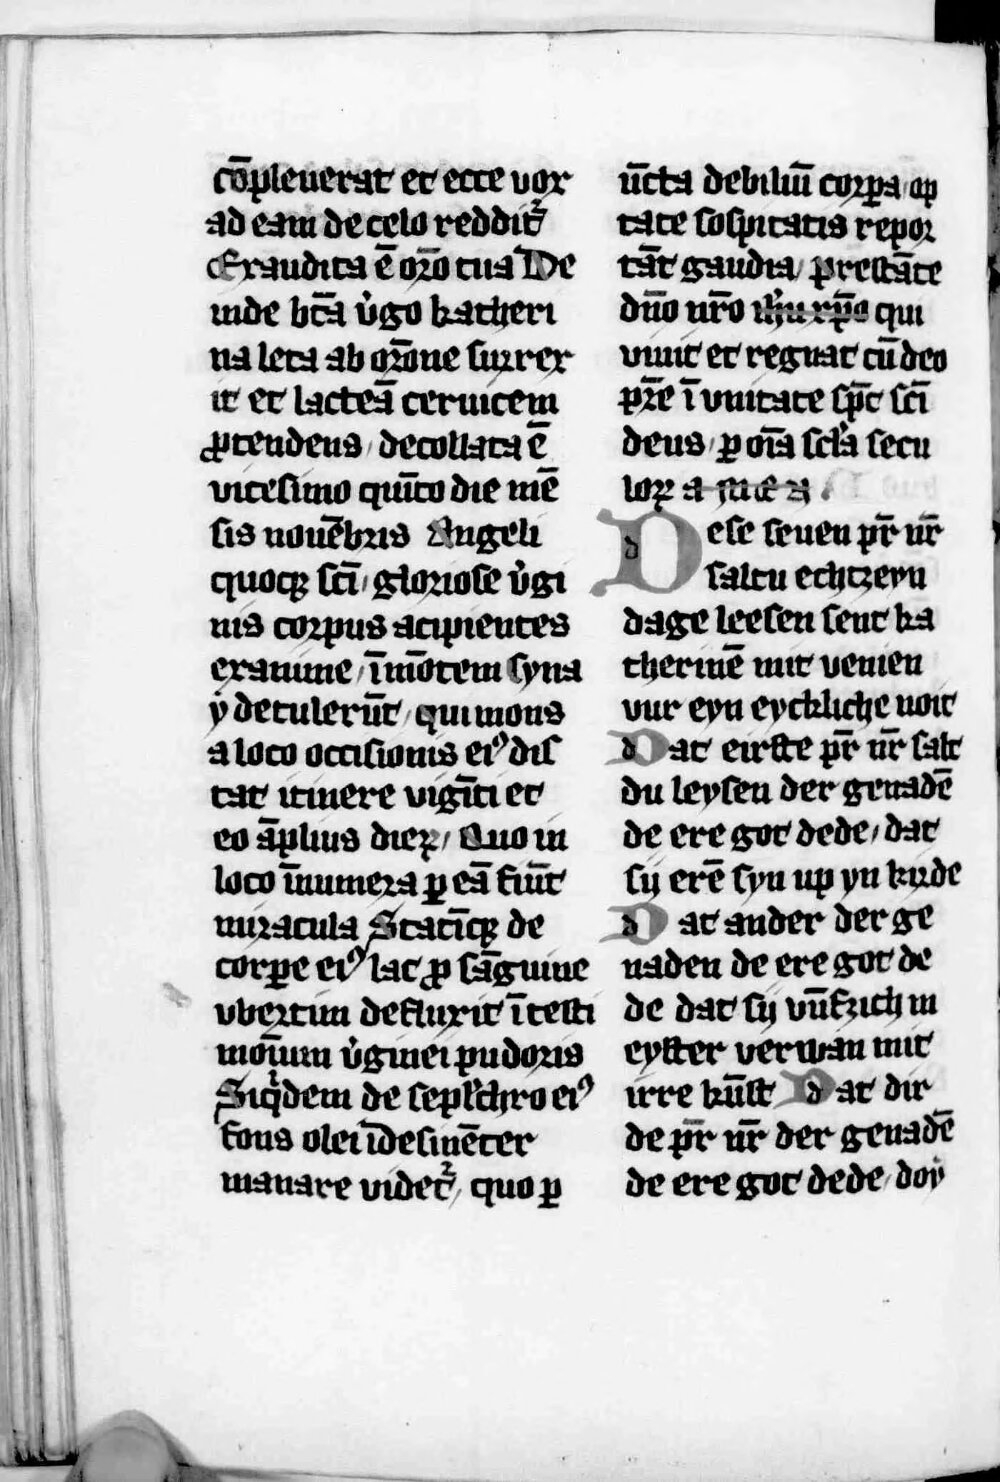 co̅pleuerat et ecce vox
ad eam de celo reddit᷑
Exaudita e̅ or̅o tua De
inde bt̅a v̓go katheri
na leta ab or̅one surrex
it et lactea̅ ceruicem
ꝓtendens / decollata e̅
vicesimo qui̅to die me̅
sis noue̅bris Angeli
quoqꝫ sc̅i / gloriose v̓gi
nis corpus acipientes
exanime / i̅ mo̅tem syna
ẏ detuleru̅t / qui mons
a loco occisionis eiꝰ dis
tat itinere vigi̅ti et
eo a̅plius dieꝝ / Quo in
loco i̅numera ꝑ ea̅ fiu̅t
miracula Stati̅qꝫ de
corꝑe eiꝰ lac ꝓ sa̅guine
vbertim defluxit i̅ testi
moi̅um v̓ginei pudoris
Siq̓dem de sepl̓chro eiꝰ
fons olei i̅desine̅ter
manare videt᷑ / quo ꝑ
u̅cta debiliu̅ corꝑa / op
tate sospitatis repor
ta̅t gaudia / presta̅te
dn̅o nr̅o ih̅u xp̅o qui
viuit et regnat cu̅ deo
pr̅e i̅ vnitate sp̅c sc̅i
deus / ꝑ oi̅a scl̓a secu
loꝝ amen /
Dese seuen pr̅ nr̅
saltu echtzeyn
dage leesen sent ka
therine̅ mit venien
vur eyn eyckliche noit
Dat eirste pr̅ nr̅ salt
du leysen der genade̅
de ere got dede / dat
sij ere̅ syn up yn kirde
Dat ander der ge
naden de ere got de
de dat sij vu̅fzich m
eyster verwan mit
irre ku̅st Dat dir
de pr̅ nr̅ der genade̅
de ere got dede / doy